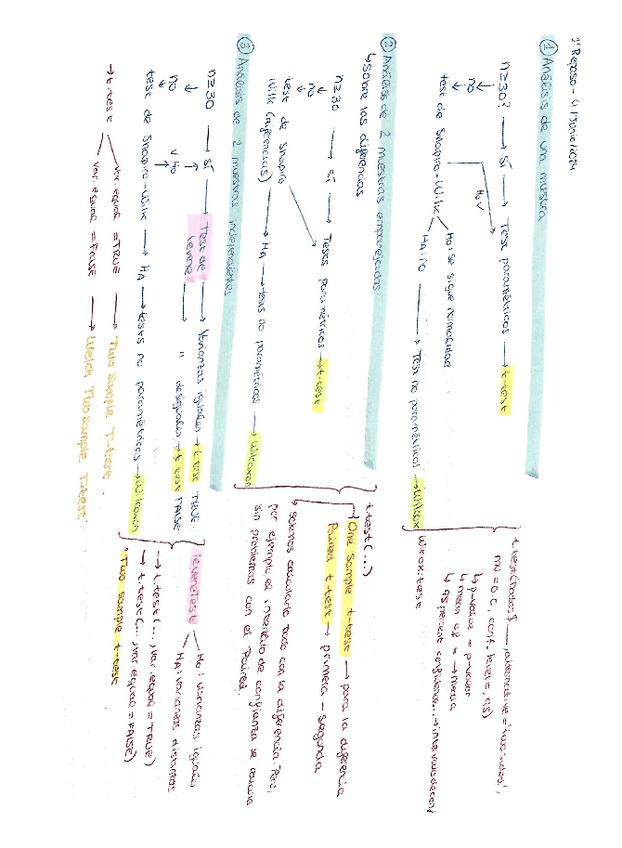 1º Repaso - 4/Junio/2024
① Análisis de una muestra
n≥30? → SÍ → Test paramétricos → t-test
no
H0 ✓
test de Shapiro-Wilk
H0: se sigue normalidad
HA: no → Test no paramétricos → Wilcox
t.test(Datos$ , alternative = "two-sided",
mu = 0.0, conf. level = .95)
↳ p-value = p-valor
↳ mean of = → media
↳ 95 percent confidence... → intervalo de conf
Wilcox.test
② Análisis de 2 muestras emparejadas
↳ sobre las diferencias
n≥30 → SÍ → Tests paramétricos → t-test
no
test de Shapiro
Wilk (diferencias) → HA → tests no paramétricos → Wilcoxon
t.test(...)
One Sample t-test → para la diferencia
Paired t-test → primera - segunda
por ejemplo, el intervalo de confianza se calcula
sin problemas con el Paired.
③ Análisis de 2 muestras independientes
n≥30 → SÍ → Test de Levene → Varianzas iguales → t test TRUE
no
✓ H0
" desiguales → t test FALSE
test de Shapiro-Wilk → HA → tests no paramétricos → Wilcoxon
leveneTest
H0: varianzas iguales
HA: varianzas distintas
→ t.test(..., var.equal = TRUE)
→ t.test(..., var.equal = FALSE)
Two sample t-test
→ t.test
var.equal = TRUE → Two Sample T-test
var.equal = FALSE → Welch Two Sample T-test